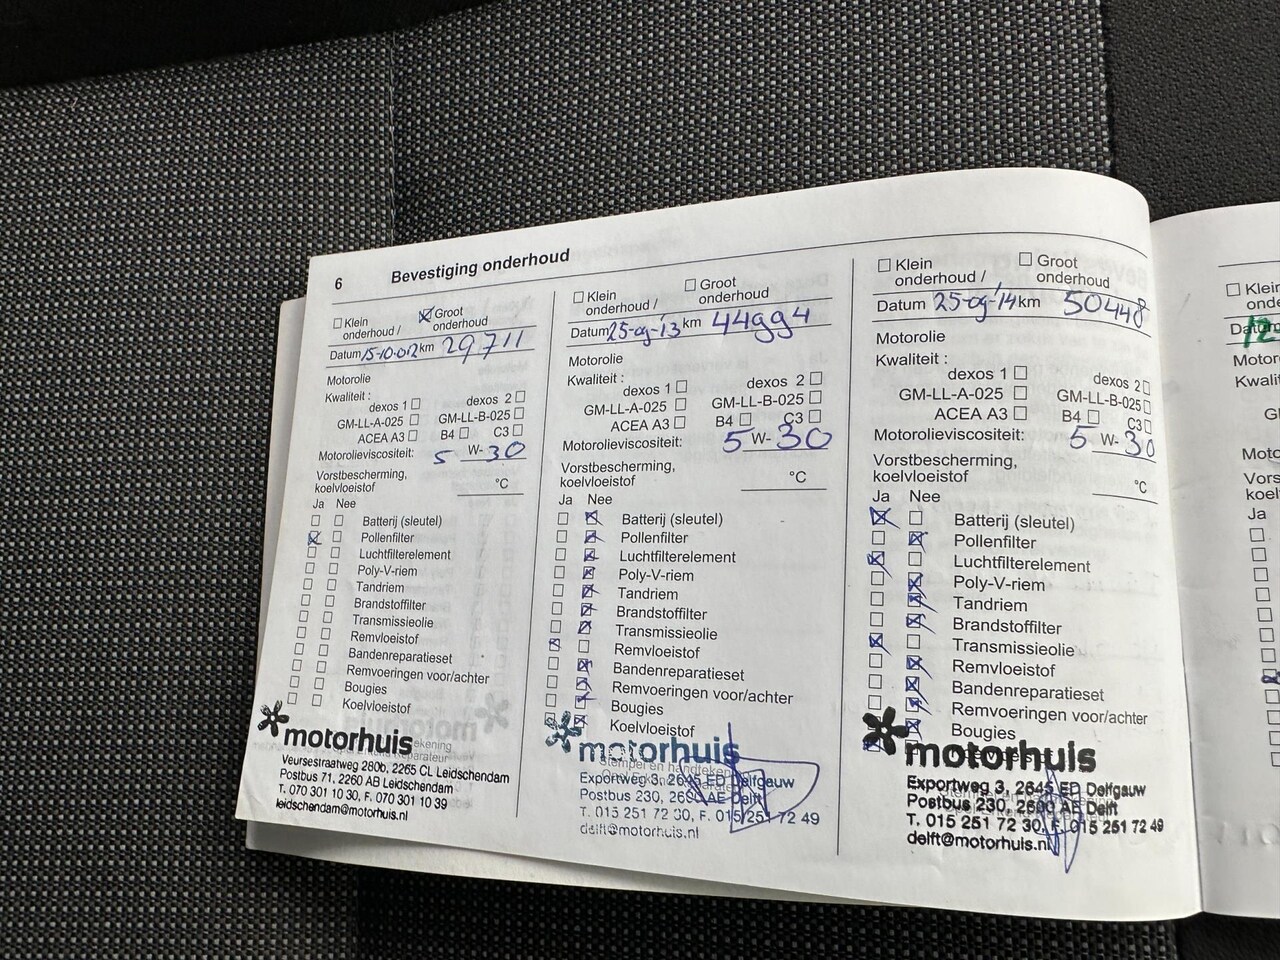 6 Bevestiging onderhoud
Klein onderhoud / Groot onderhoud
Datum 15-10-012 km 29711
Motorolie
Kwaliteit :
dexos 1 dexos 2
GM-LL-A-025 GM-LL-B-025
ACEA A3 B4 C3
Motorolieviscositeit: 5 W- 30
Vorstbescherming,
koelvloeistof °C
Ja Nee
Batterij (sleutel)
Pollenfilter
Luchtfilterelement
Poly-V-riem
Tandriem
Brandstoffilter
Transmissieolie
Remvloeistof
Bandenreparatieset
Remvoeringen voor/achter
Bougies
Koelvloeistof
motorhuis
Veursestraatweg 280b, 2265 CL Leidschendam
Postbus 71, 2260 AB Leidschendam
T. 070 301 10 30, F. 070 301 10 39
leidschendam@motorhuis.nl
Klein onderhoud / Groot onderhoud
Datum 25-09-13 km 44994
Motorolie
Kwaliteit :
dexos 1 dexos 2
GM-LL-A-025 GM-LL-B-025
ACEA A3 B4 C3
Motorolieviscositeit: 5 W- 30
Vorstbescherming,
koelvloeistof °C
Ja Nee
Batterij (sleutel)
Pollenfilter
Luchtfilterelement
Poly-V-riem
Tandriem
Brandstoffilter
Transmissieolie
Remvloeistof
Bandenreparatieset
Remvoeringen voor/achter
Bougies
Koelvloeistof
motorhuis
Stempel en handteken
Exportweg 3, 2645 ED Delfgauw
Postbus 230, 2600 AE Delft
T. 015 251 72 30, F. 015 251 72 49
delft@motorhuis.nl
Klein onderhoud / Groot onderhoud
Datum 25-09-14 km 50448
Motorolie
Kwaliteit :
dexos 1 dexos 2
GM-LL-A-025 GM-LL-B-025
ACEA A3 B4 C3
Motorolieviscositeit: 5 W- 30
Vorstbescherming,
koelvloeistof °C
Ja Nee
Batterij (sleutel)
Pollenfilter
Luchtfilterelement
Poly-V-riem
Tandriem
Brandstoffilter
Transmissieolie
Remvloeistof
Bandenreparatieset
Remvoeringen voor/achter
Bougies
motorhuis
Exportweg 3, 2645 ED Delfgauw
Postbus 230, 2600 AE Delft
T. 015 251 72 30, F. 015 251 72 49
delft@motorhuis.nl
Datum 12
Ja